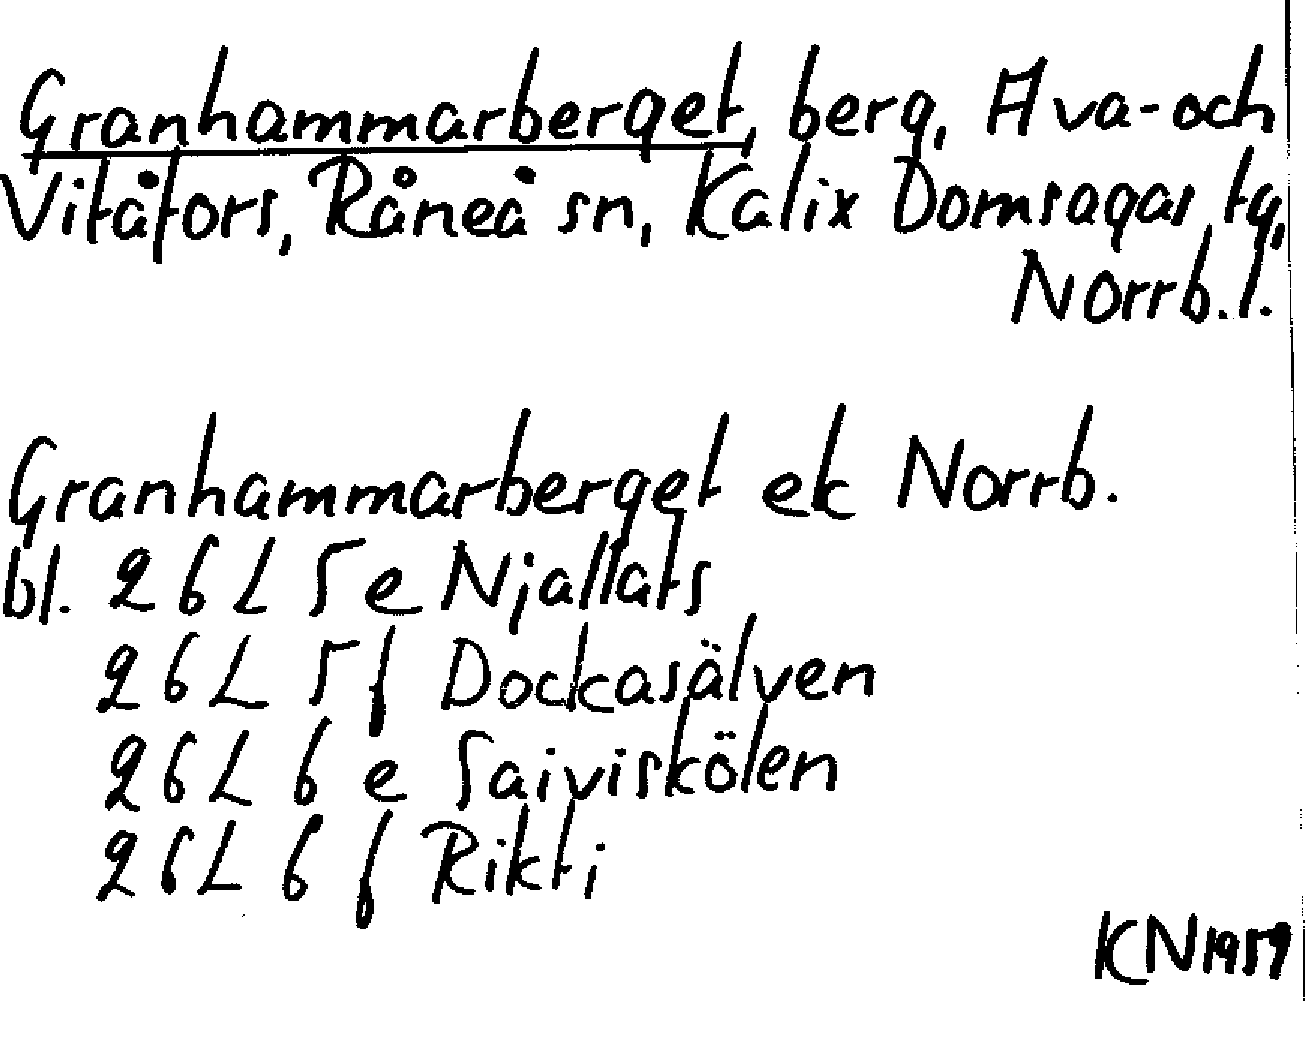 Granhammarberget, berg, Ava- och
Vitåfors, Råneå sn, Kalix Domsagas tg,
Norrb. l.
Granhammarberget ek Norrb.
bl. 26 L 5 e Njallats
26 L 5 f Dockasälven
26 L 6 e Saiviskölen
26 L 6 f Rikti
KN 1959